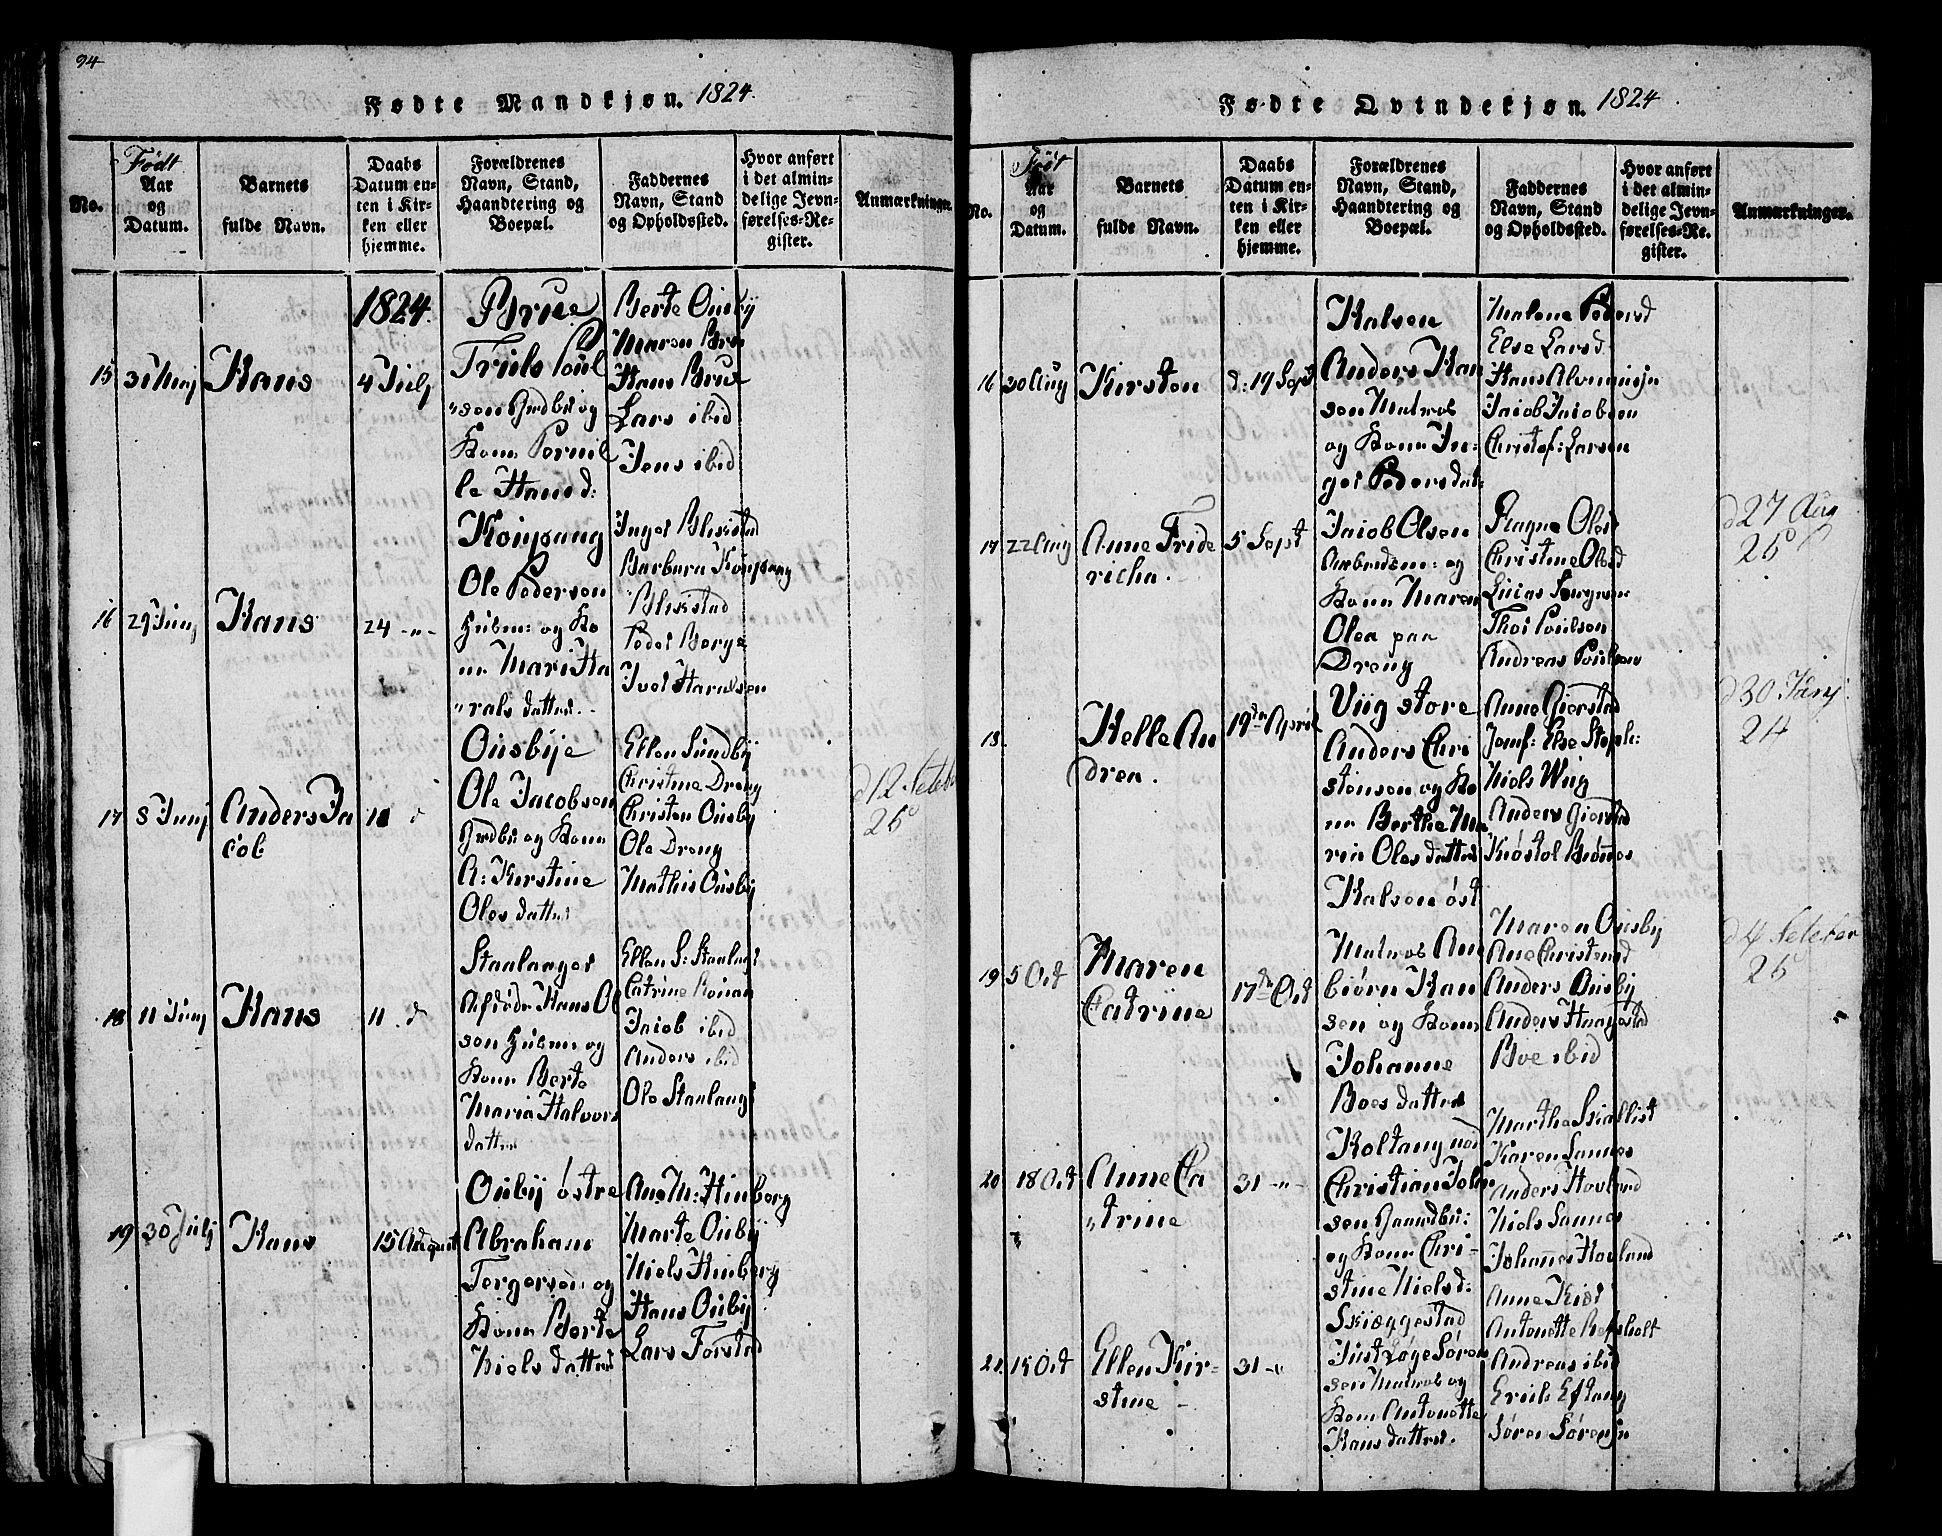 94
Fødte Mandkjøn. 1824
Født
No.
Aar
og
Datum.
Barnets
fulde Navn.
Daabs
Datum en-
ten i Kir-
ken eller
hjemme.
Forældrenes
Navn, Stand,
Haandtering og
Boepæl.
Faddernes
Navn, Stand
og Opholdssted.
Hvor anført
i det almin-
delige Jevn-
førelses-Re-
gister.
Anmærkninger.
15
Hans
1824
4 July
Brue
Truls Poul
sen Grdbr og
Kone Pernil
le Hansd:
Berte Ousby
Maren Brue
Hans Brue
Lars ibid
Jens ibid
16
29 Junj
Hans
24 -"-
Ole Pedersen
Huusm: og Ko
ne Mari Ha
ralsdatter
Inger
Barbara
Peder Berge
Ivel Haraldsen
17
8 Junj
Anders Ja
cob
11 d
Ousbye
Ole Jacobsen
Grdbr og Kone
A: Kirstine
Olesdatter
Ellen Sundby
Christine Dreng
Christen Ousby
Ole Dreng
Mathis Ousby
25
18
11 Junj
Hans
11 d
Stanlanger
Afdøde Hans Ol
sen Huusm og
Kone Berte
Maria Halvors
datter
Ellen S: Stanlager
Catrine
Jacob ibid
Anders ibid
Ole Stanlang
19
30 Julj
Hans
15 August
Ousby østre
Abraham
Torgersen og
Kone Berte
Nielsdatter
Ane M: Hinberg
Marte Ousby
Niels Hinberg
Hans Ousby
Lars Forstad
Fødte Qvindekjøn. 1824
Født
No.
Aar
og
Datum.
Barnets
fulde Navn.
Daabs
Datum en-
ten i Kir-
ken eller
hjemme.
Forældrenes
Navn, Stand,
Haandtering og
Boepæl.
Faddernes
Navn, Stand
og Opholdssted.
Hvor anført
i det almin-
delige Jevn-
førelses-Re-
gister.
Anmærkninger.
16
30 Aug
Kirsten
d: 19 Sept
Kalsen
Anders Han
sen Matros
og Kone In-
ger Pedersdat:
Malene Pedersd
Else Larsd
Jacob Jacobsen
Christof: Larsen
17
22 Aug
Anne Fride
richa
5 Sept
Jacob Olsen
Arbeidsm: og
Kone Maren
Olea paa
Dreng
Ragne Olsd
Christine Olsd
Thor Poulsen
Andreas Poulsen
d 27 Aug
25
18
Helle An
drea.
19de April
Viig store
Anders Chri
stensen og Ko
ne Berthe Ma
ria Olesdatter
Anne Gierstad
Jomf: Else Steph:
Niels Wiig
Anders Gierstad
d 30 Junj
24
19
5 Oct
Maren
Catrine
17de Oct
Kalsen øst
Matros Am
biørn Han
sen og Kone
Johanne
Boesdatter
Maren Ousby
Ane Christensd
Anders Ousby
Anders Haagestad
Boe ibid
25
20
18 Oct
Anne Ca
trine
31 -"-
Holtang nor
Christian John
sen Gaardbr:
og Kone Chri-
stine Nielsd:
Martha Skiallist
Karen Sannes
Anders Hovland
Niels Sannes
Johannes Hovland
21
15 Oct
Ellen Kir-
stine
31 -"
Skiæggestad
Just Løge Søren
sen Matros og
Kone Antonette
Hansdatter
Anne Kiær
Antonette Rofsholt
Andreas ibid
Erich Eftang
Søren Sørensen